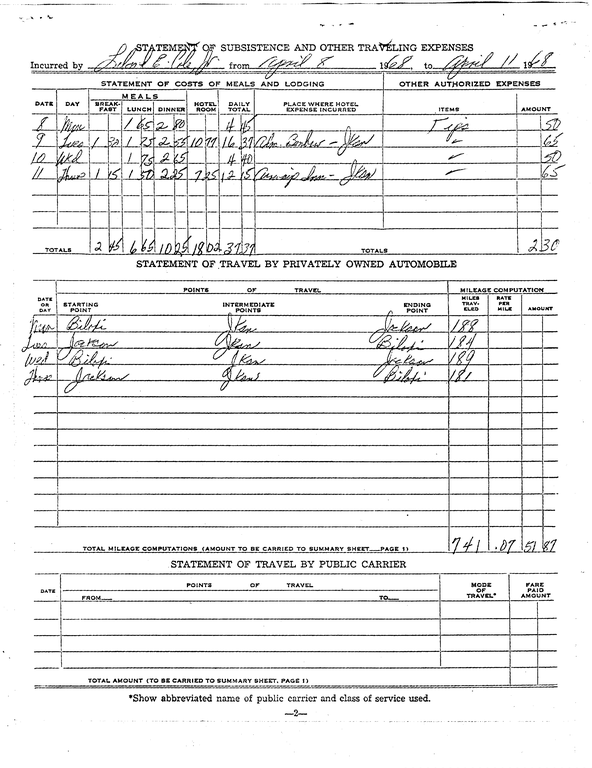 STATEMENT OF SUBSISTENCE AND OTHER TRAVELING EXPENSES
Incurred by Leland E. Cole, Jr. from April 8 1968, to April 11 1968
STATEMENT OF COSTS OF MEALS AND LODGING OTHER AUTHORIZED EXPENSES
MEALS
DATE DAY BREAK-FAST LUNCH DINNER HOTEL ROOM DAILY TOTAL PLACE WHERE HOTEL EXPENSE INCURRED ITEMS AMOUNT
8 Mon 1 65 2 80 4 45 Tips 50
9 Tues 1 30 1 75 2 55 10 77 16 37 - Jkan " 65
10 Wed 1 75 2 65 4 40 " 50
11 Thurs 1 15 1 50 2 25 7 25 12 15 Inn - Jkan " 65
TOTALS 2 45 6 65 10 25 18 02 37 37 TOTALS 2 30
STATEMENT OF TRAVEL BY PRIVATELY OWNED AUTOMOBILE
POINTS OF TRAVEL MILEAGE COMPUTATION
DATE OR DAY STARTING POINT INTERMEDIATE POINTS ENDING POINT MILES TRAV-ELED RATE PER MILE AMOUNT
Mon Biloxi Jkan Jackson 188
Tues Jackson Jkan Biloxi 184
Wed Biloxi Jkan Jackson 189
Thurs Jackson Jkan Biloxi 181
TOTAL MILEAGE COMPUTATIONS (AMOUNT TO BE CARRIED TO SUMMARY SHEET—PAGE 1) 741 .07 51 87
STATEMENT OF TRAVEL BY PUBLIC CARRIER
DATE POINTS OF TRAVEL MODE OF TRAVEL* FARE PAID AMOUNT
FROM— TO—
TOTAL AMOUNT (TO BE CARRIED TO SUMMARY SHEET. PAGE 1)
*Show abbreviated name of public carrier and class of service used.
—2—